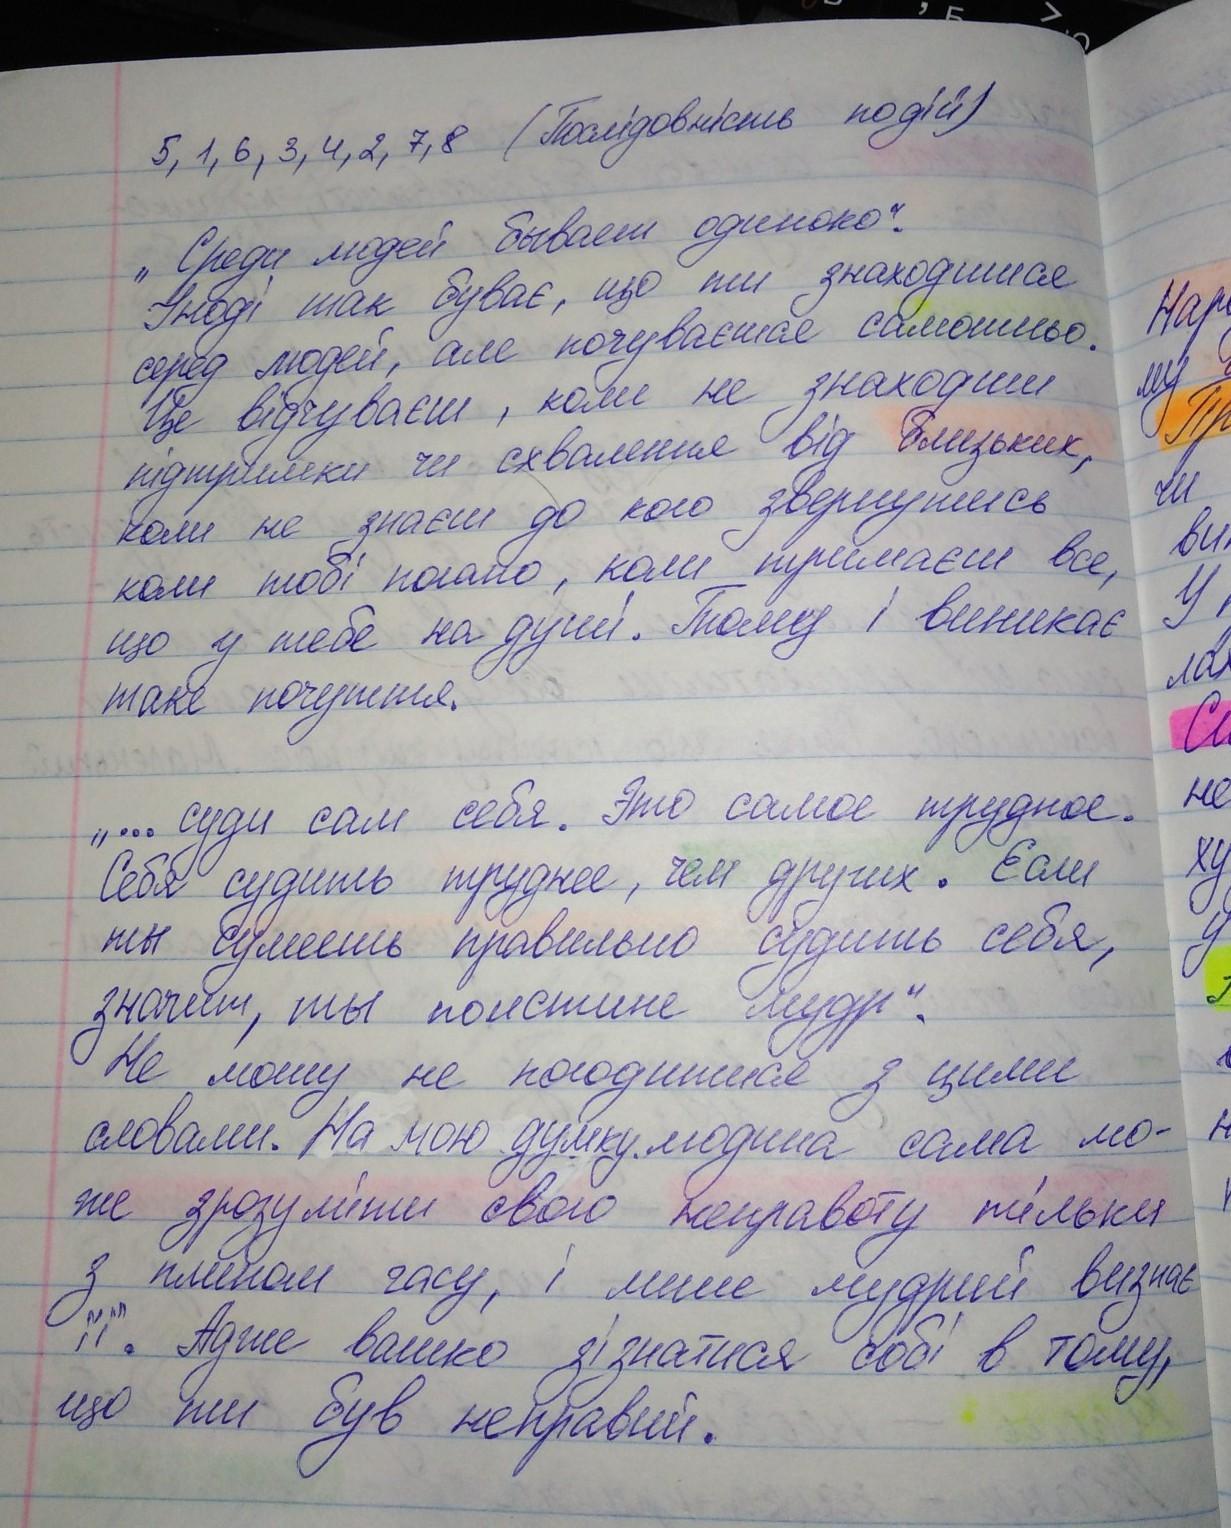 5, 1, 6, 3, 4, 2, 7, 8 (Послідовність подій)
„Среди людей бывает одиноко“.
Іноді так буває, що ти знаходишся
серед людей, але почуваєшся самотньо.
Це відчуваєш, коли не знаходиш
підтримки чи схвалення від близьких,
коли не знаєш до кого звернутись
коли тобі погано, коли тримаєш все,
що у тебе на душі. Тому і виникає
таке почуття.
„... суди сам себя. Это самое трудное.
Себя судить труднее, чем других. Если
ты сумеешь правильно судить себя,
значит, ты поистине мудр“.
Не можу не погодитися з цими
словами. На мою думку людина сама мо-
же зрозуміти свою неправоту тільки
з плином часу, і лише мудрий визнає
її. Адже важко зізнатися собі в тому,
що ти був неправий.
Нар
му
Пр
чи
ви
У
лах
Си
не
ху
у